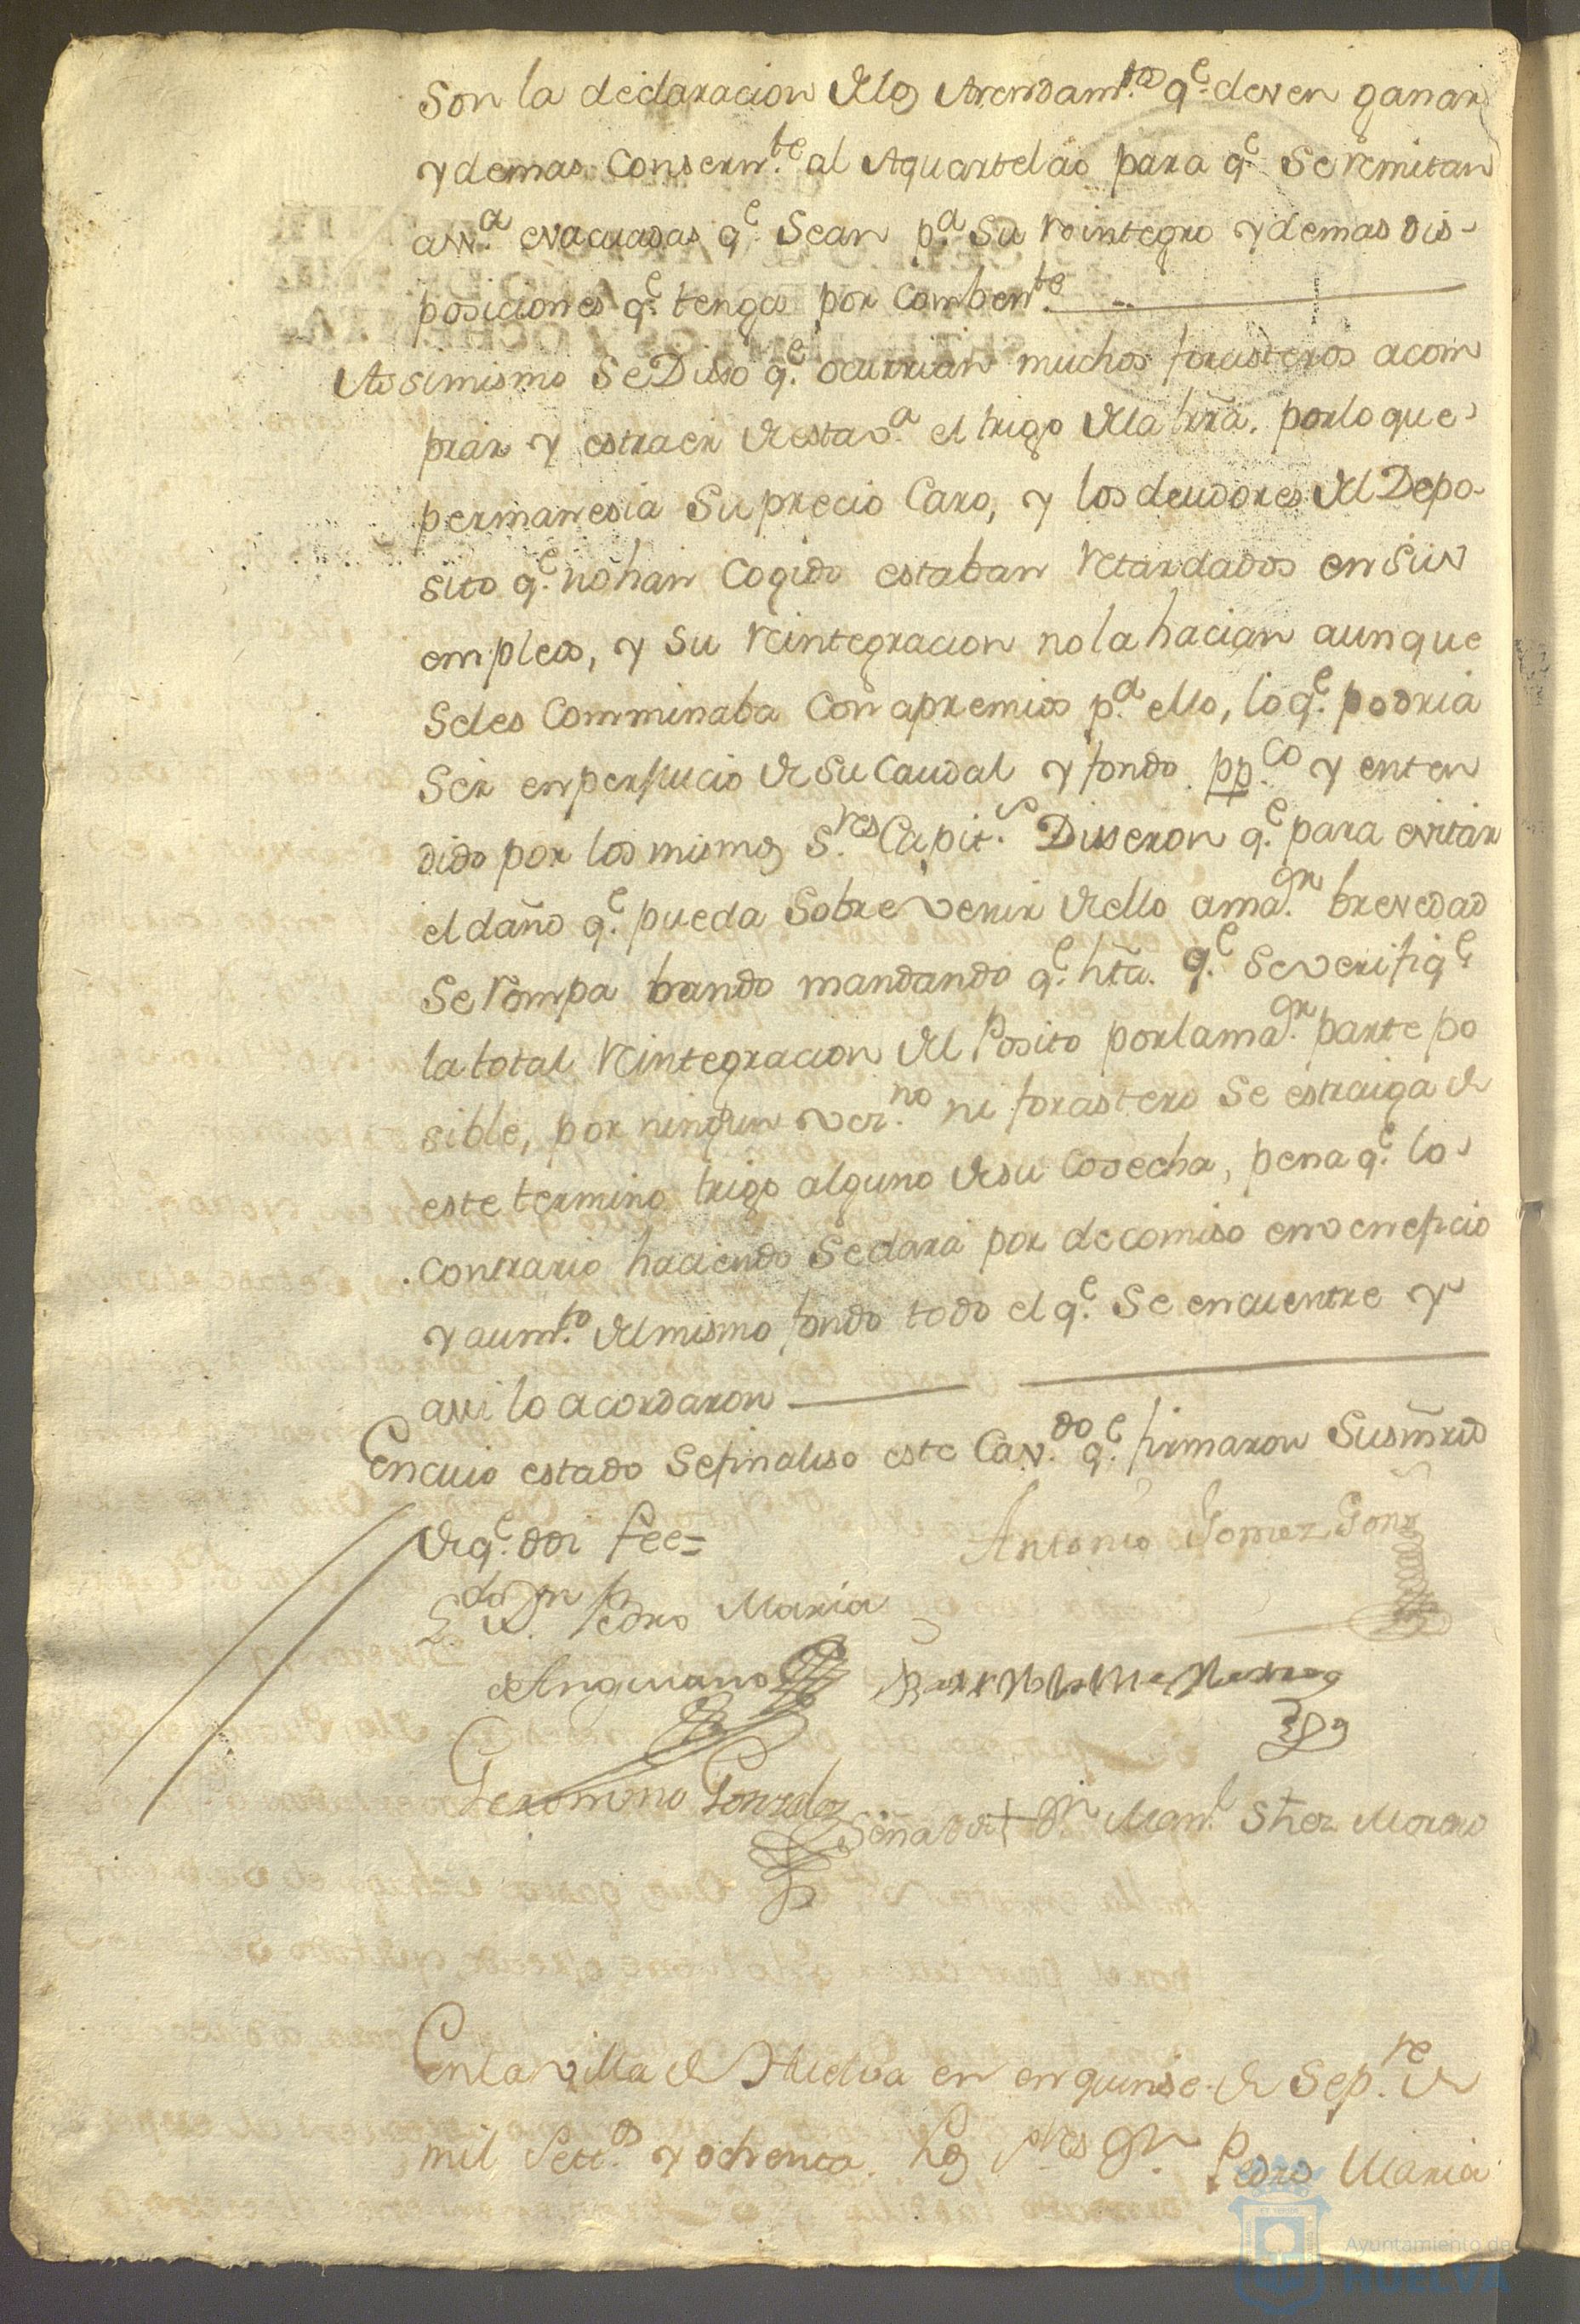 Son la declaracion de los Arrendam.tos q.e deven ganar
y demas Consern.te al Aquartelao para q.e Se remitan
a W.a evacuadas q.e Sean p.a Su reintegro y demas dis-
posiciones q.e tenga por Comben.te
Assimismo Se Dixo q.e ocurrian muchos forasteros a com
prar y estraer de esta v.a el trigo de la trrã. por lo que
permanesia Su precio Caro, y los deudores del Depo-
sito q.e no han Cogido estaban retardados en Sus
empleos, y Su reintegracion no la hacian aunque
Se les Comminaba Con apremios p.a ello, lo q.e podria
Ser en perjucio de Su Caudal y fondo pp.co y enten
dido por los mismos S.res Capit.s Dixeron q.e para evitar
el daño q.e pueda Sobre venir de ello a ma.or brevedad
Se rompa bando mandando q.e htã. q.e Se verifiq.e
la total reintegracion del Posito por la ma.or parte po
sible, por ningun vez.no ni forastero Se estraiga de
este termino trigo alguno de su Cosecha, pena q.e lo
contrario haciendo Se dara por decomiso en veneficio
y aum.to del mismo fondo todo el q.e Se encuentre y
assi lo acordaron
En cuio estado Se finaliso este Cav.do q.e firmaron Sus mrds
de q.e doi fee=
Antonio Gomez Gonz
L.do D.n Pedro Maria
de Anguiano
Geronimo Gonzalez
Señal de † D.n Man.l Shez Moreno
En la villa de Huelva en en quinse de Sep.re de
mil Sett.os y ochenta. los S.res D.n Pedro Maria
Ayuntamiento de
HUELVA